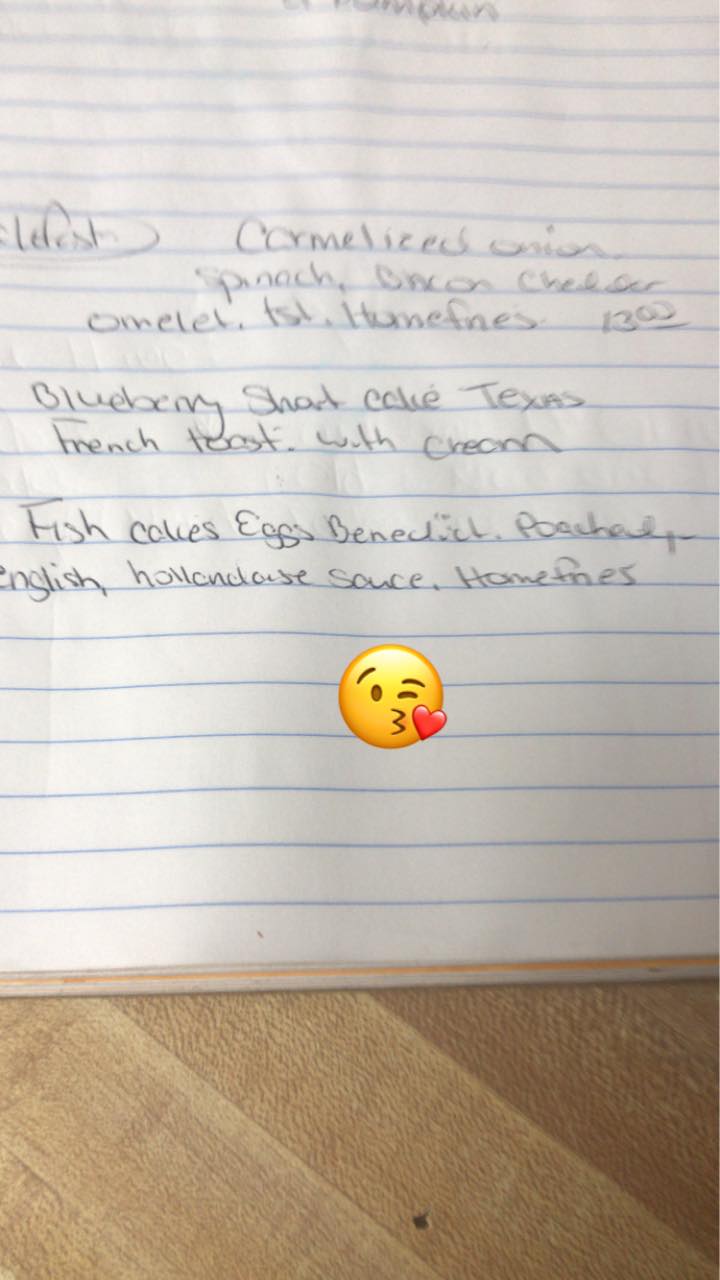 Carmelized onion.
Spinach, Bacon Chedder
omelet. tst. Homefries. 13.00
Blueberry Short cake Texas
French toast. with cream
Fish cakes Eggs Benedict. Poached,
english, hollandaise sauce. Homefries